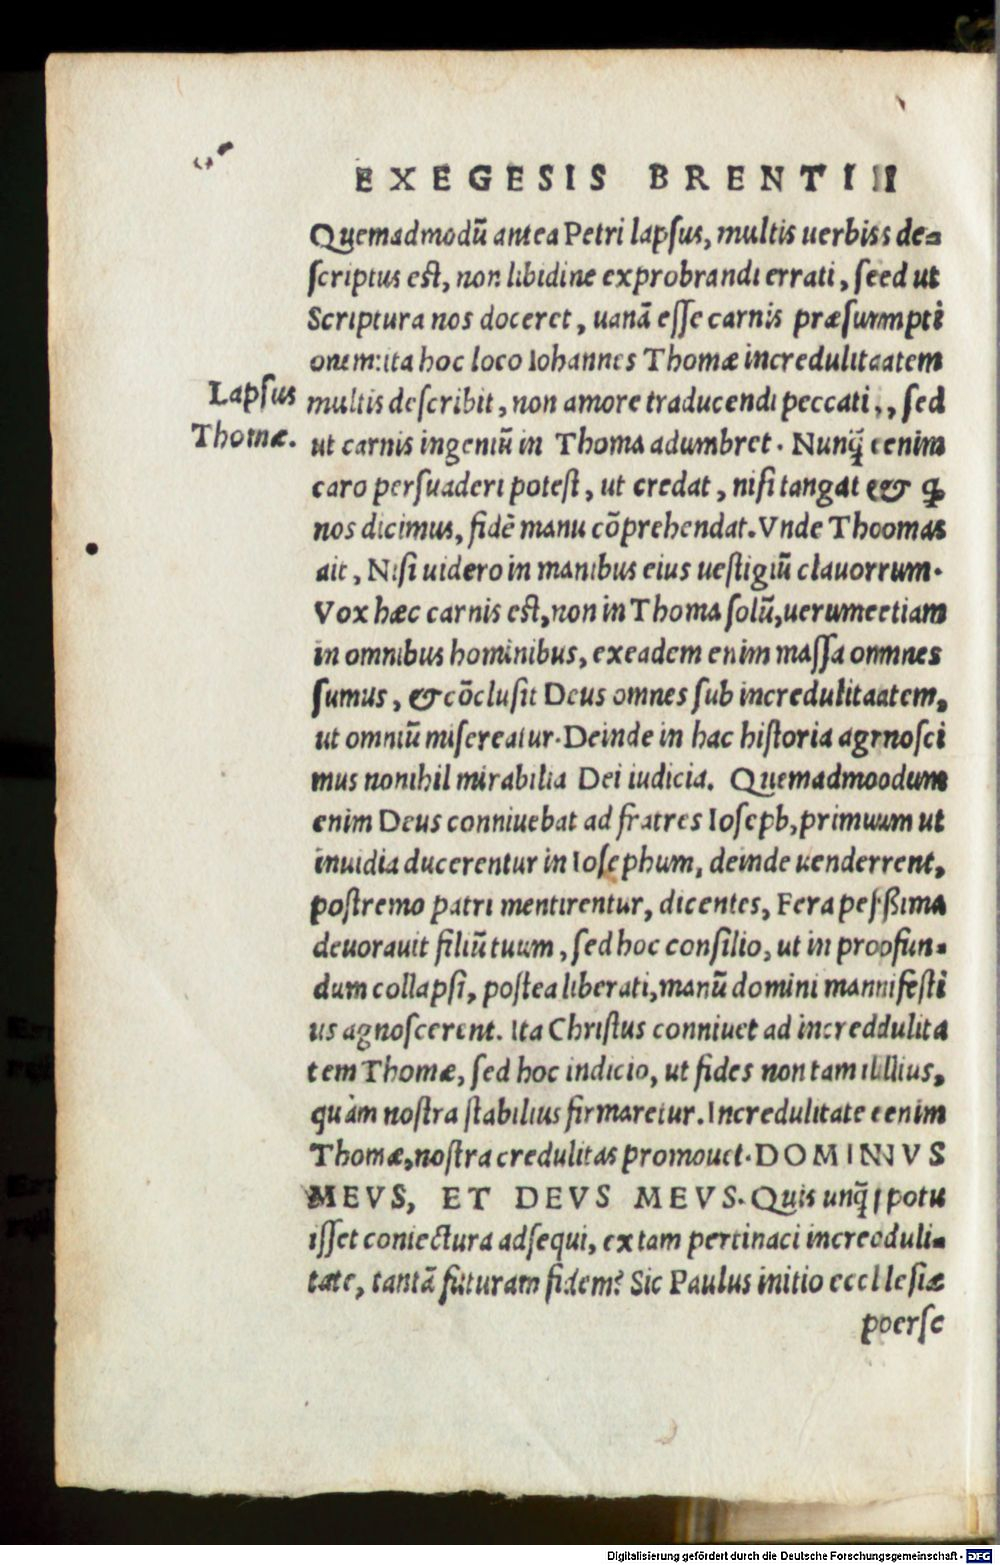 EXEGESIS BRENTII
Quemadmodū antea Petri lapſus, multis uerbis de⸗
ſcriptus eſt, non libidine exprobrandi errati, ſed ut
Scriptura nos doceret, uanã eſſe carnis præſumpti
onem: ita hoc loco Iohannes Thomæ incredulitatem
Lapſus
Thomæ.
multis deſcribit, non amore traducendi peccati, ſed
ut carnis ingeniū in Thoma adumbret. Nunꝗ̃ enim
caro perſuaderi poteſt, ut credat, niſi tangat & ꝙ
nos dicimus, fidẽ manu cõprehendat. Vnde Thomas
ait, Niſi uidero in manibus eius ueſtigiū clauorum.
Vox hæc carnis eſt, non in Thoma ſolū, uerumetiam
in omnibus hominibus, ex eadem enim maſſa omnes
ſumus, & cõcluſit Deus omnes ſub incredulitatem,
ut omniū miſereatur. Deinde in hac hiſtoria agnoſci
mus nonihil mirabilia Dei iudicia. Quemadmodum
enim Deus conniuebat ad fratres Ioſeph, primum ut
inuidia ducerentur in Ioſephum, deinde uenderent,
poſtremo patri mentirentur, dicentes, Fera peſſima
deuorauit filiū tuum, ſed hoc conſilio, ut in profun⸗
dum collapſi, poſtea liberati, manū domini manifeſti
us agnoſcerent. Ita Chriſtus conniuet ad incredulita
tem Thomæ, ſed hoc indicio, ut fides non tam illius,
quàm noſtra ſtabilius firmaretur. Incredulitate enim
Thomæ, noſtra credulitas promouet. DOMINVS
MEVS, ET DEVS MEVS. Quis unꝗ̃ potu
iſſet coniectura adſequi, ex tam pertinaci increduli⸗
tate, tantã futuram fidem? Sic Paulus initio eccleſiæ
perſe
Digitalisierung gefördert durch die Deutsche Forschungsgemeinschaft - DFG